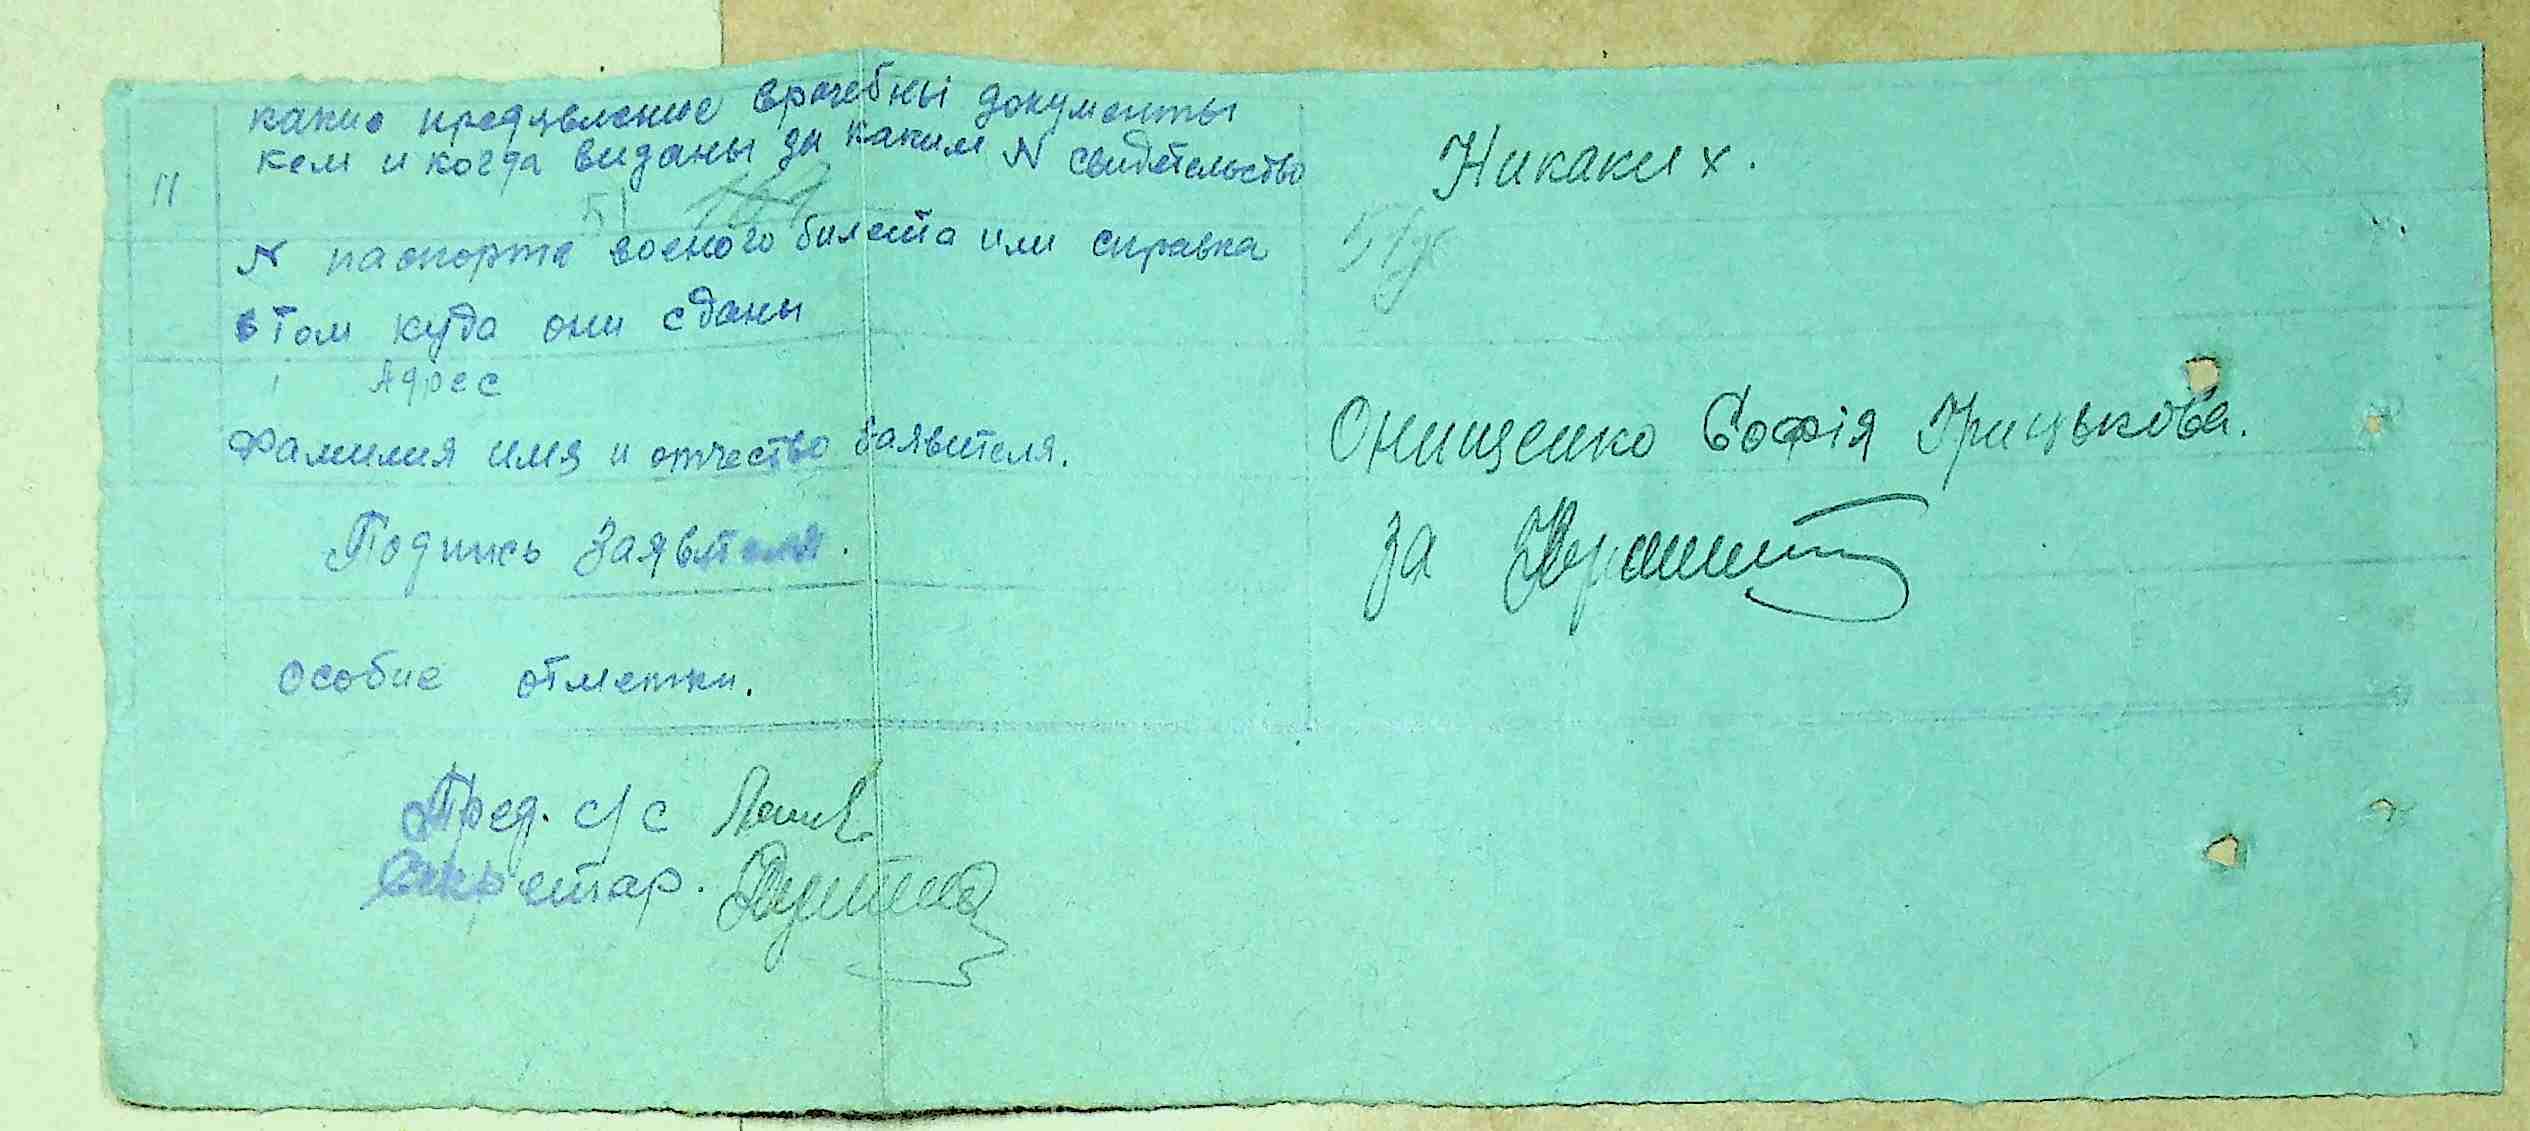 какие предявление врачебни документы
кем и когда виданы за каким N свидетельство
11
Никаких.
51
N паспорта военого билета или справка
о том куда они сданы
Адрес
Фамилия имя и отчество заявителя.
Онищенко Софія Грицькова.
Подпись заявителя.
за
Особие отметки.
Пред. с/с
Секретар.